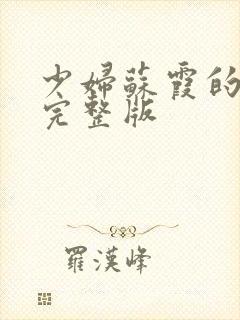 少婦蘇霞的
完整版
羅漢峰